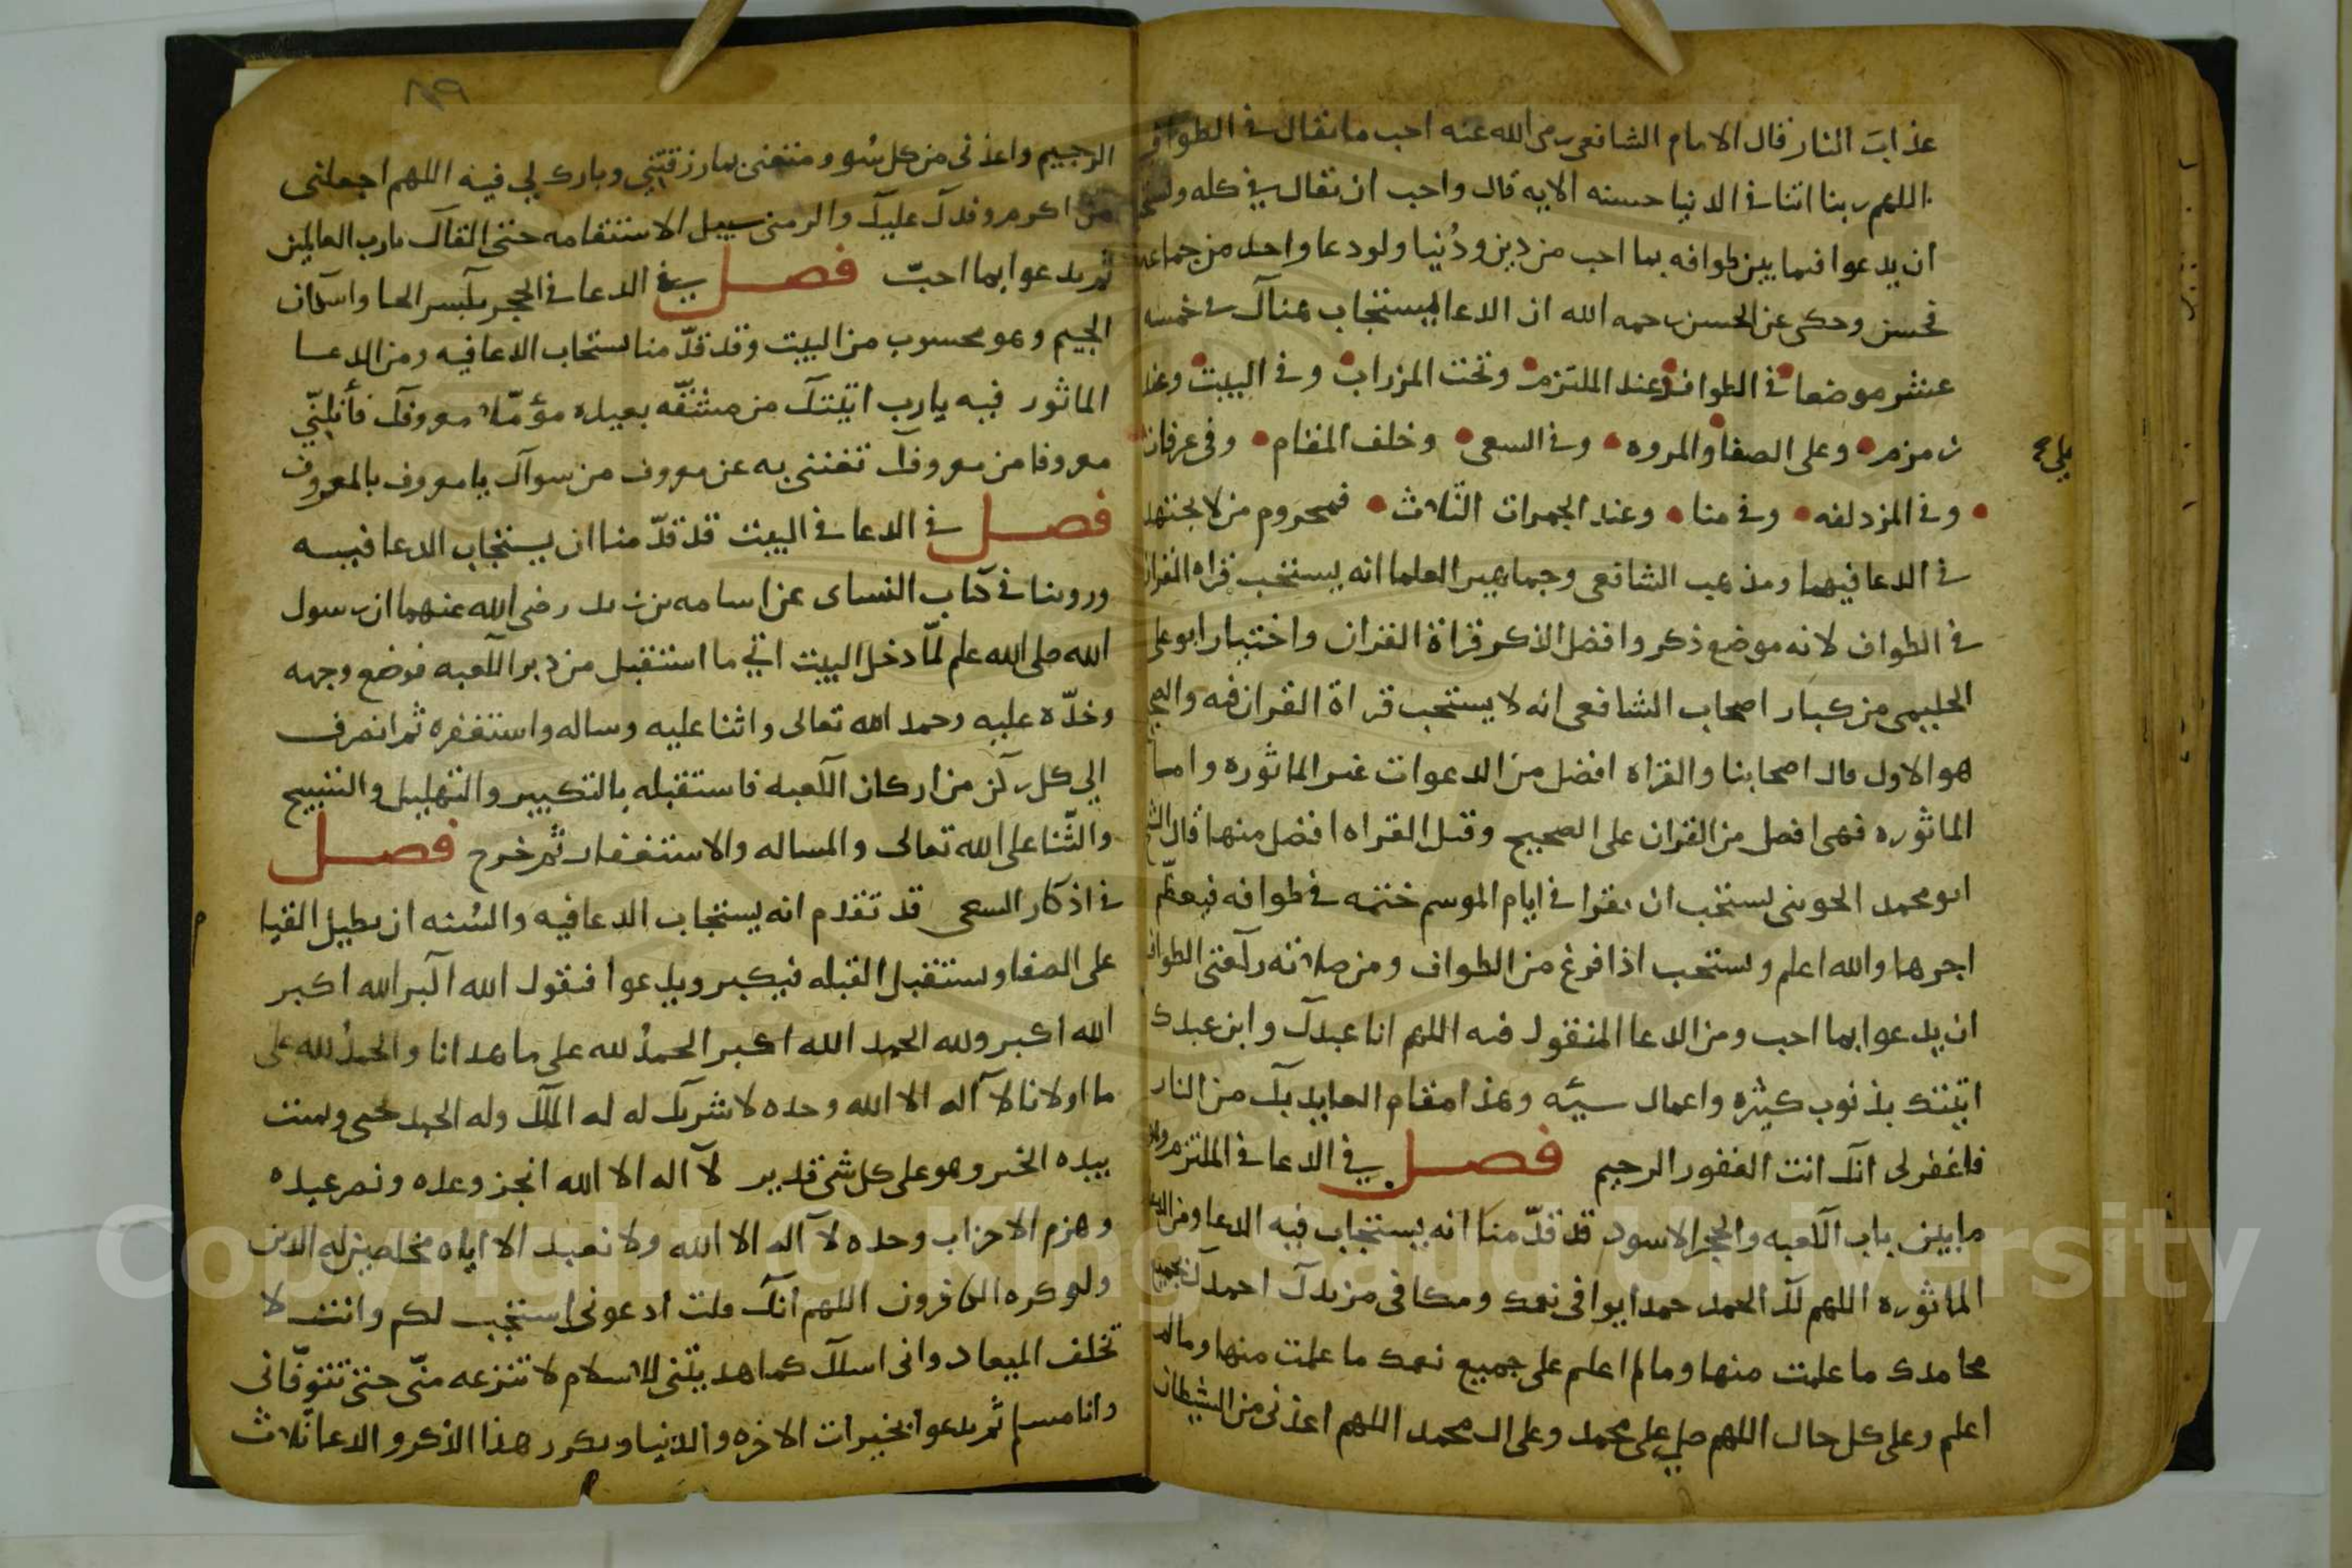 عذاب النار قال الامام الشافعي رضي الله عنه احب ما يقال في الطواف
اللهم ربنا اتنا في الدنيا حسنه الايه قال واحب ان يقال في كله ويستحب
ان يدعوا فيما بين طوافه بما احب من دين ودُنيا ولو دعا واحد من جماعه
فحسن وحكى عن الحسن رحمه الله ان الدعا يستجاب هنالك في خمسه
عشر موضعا في الطواف وعند الملتزم وتحت المزراب وفي البيت وعند
زمزم وعلى الصفا والمروه وفي السعي وخلف المقام وفي عرفات
وفي المزدلفه وفي منا وعند الجمرات الثلاث فمحروم من لا يجتهد
في الدعا فيها ومذهب الشافعي وجماهير العلما انه يستحب قراه القران
في الطواف لانه موضع ذكر وافضل الذكر قراة القران واختيار ابو على
الحليمي من كبار اصحاب الشافعي انه لا يستحب قراة القران فيه والصحيح
هو الاول قال اصحابنا والقراه افضل من الدعوات غير الماثوره واما
الماثوره فهى افضل من القران على الصحيح وقيل القراه افضل منها قال الشيخ
ابو محمد الجويني يستحب ان يقرا في ايام الموسم ختمه في طوافه فيعظم
اجرها والله اعلم ويستحب اذا فرغ من الطواف ومن صلاته ركعتي الطواف
ان يدعوا بما احب ومن الدعا المنقول فيه اللهم انا عبدك وابن عبدك
اتيتك بذنوب كثيره واعمال سيئه وهذا مقام العايد بك من النار
فاغفر لى انك انت الغفور الرحيم فصل في الدعا في الملتزم وهو
ما بين باب الكعبه والحجر الاسود قد قدّمنا انه يستجاب فيه الدعا ومن الدعوات
الماثوره اللهم لك الحمد حمدا يوافى نعمك ومكافى مزيدك احمدك بجميع
محامدك ما علمت منها وما لم اعلم على جميع نعمك ما علمت منها وما لم
اعلم وعلى كل حال اللهم صلي على محمد وعلى ال محمد اللهم اعذني من الشيطان
الرجيم واعذنى من كل سُو ومنعنى بما رزقتني وبارك لي فيه اللهم اجعلنى
من اكرم وفدك عليك والزمنى سبيل الاستقامه حتى القاك يا رب العالمين
ثم يدعوا بما احبّ فصل في الدعا في الحجر بكسر الحا واسكان
الجيم وهو محسوب من البيت وقد قدّمنا يستجاب الدعا فيه ومن الدعا
الماثور فيه يا رب اتيتك من مشقّه بعيده مؤمّلا معروفك فأنلنّي
معروفا من معروفك تغننى به عن معروف من سواك يا معروف بالمعروف
فصل في الدعا في البيت قد قدّمنا ان يستجاب الدعا فيه
وروينا في كتاب النساى عن اسامه بن زيد رضى الله عنهما ان رسول
الله صلى الله علم لمّا دخل البيت اتي ما استقبل من دبر الكعبه فوضع وجهه
وخدّه عليه وحمد الله تعالى واثنا عليه وساله واستغفره ثم انصرف
الي كل ركن من اركان الكعبه فاستقبله بالتكبير والتهليل والتسبيح
والثّنا على الله تعالى والمساله والاستغفار ثم خرج فصل
في اذكار السعى قد تقدم انه يستجاب الدعا فيه والسُنه ان يطيل القيا
م
على الصفا ويستقبل القبله فيكبر ويدعوا فيقول الله اكبر الله اكبر
الله اكبر ولله الحمد الله اكبر الحمدُ لله على ما هدانا والحمدُ لله على
ما اولانا لا اله الا الله وحده لا شريك له له الملك وله الحمد يحيى ويميت
بيده الخير وهو على كل شى قدير لا اله الا الله انجز وعده ونصر عبده
وهزم الاحزاب وحده لا اله الا الله ولا نعبد الا اياه مخلصين له الدين
ولو كره الكافرون اللهم انك قلت ادعونى استجب لكم وانت لا
تخلف الميعاد وانى اسلك كما هديتنى للاسلام لا تنزعه منّى حتى تتوفّانى
وانا مسلم ثم يدعوا بخيرات الاخره والدنيا ويكرر هذا الذكر والدعا ثلاث
Copyright © King Saud University